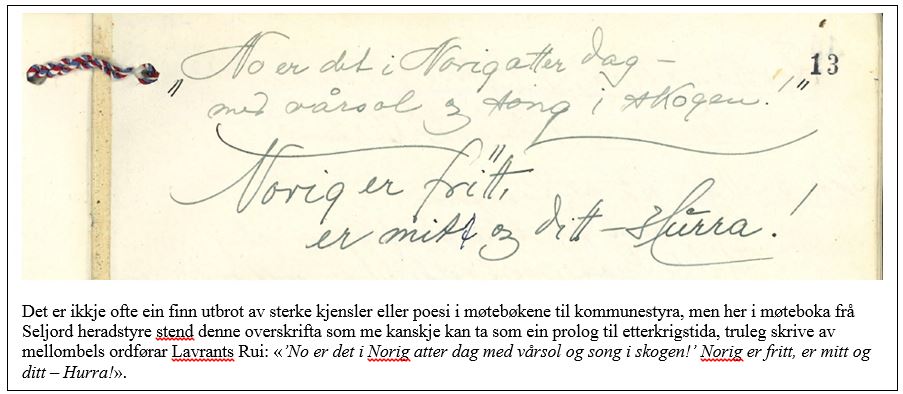 "No er det i Norig atter dag –
13
med vårsol og song i skogen!"
Norig er fritt,
er mitt og ditt – Hurra!
Det er ikkje ofte ein finn utbrot av sterke kjensler eller poesi i møtebøkene til kommunestyra, men her i møteboka frå
Seljord heradstyre stend denne overskrifta som me kanskje kan ta som ein prolog til etterkrigstida, truleg skrive av
mellombels ordførar Lavrants Rui: «'No er det i Norig atter dag med vårsol og song i skogen!' Norig er fritt, er mitt og
ditt – Hurra!».